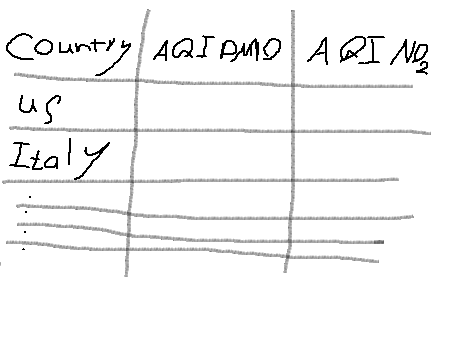 Country AQI PM10 AQI NO2
US
Italy